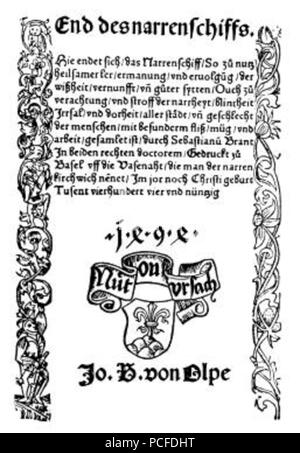 End des narrenschiffs.
Hie endet sich/das Narrenschiff/So zů nutz
heilsamer ler/ermanung/vnd ervolgũg/der
wißheit/vernunfft/vñ gůter sytten/Ouch zů
verachtung/vnd stroff der narrheyt/blintheit
Irrsal/vnd dorheit/aller städt/vñ geschlecht
der menschen/mit besunderm fliß/müg/vnd
arbeit/gesamlet ist/durch Sebastianũ Brant
In beiden rechten doctorem/Gedruckt zů
Basel vff die Vasenaht/die man der narren
kirchwich nēnet/Im jor noch Christi geburt
Tusent vierhundert vier vnd nüntzig
.1.4.9.4.
Nüt on vrsach
Jo. B. von Olpe
alamy
Image ID: PCFDHT
www.alamy.com